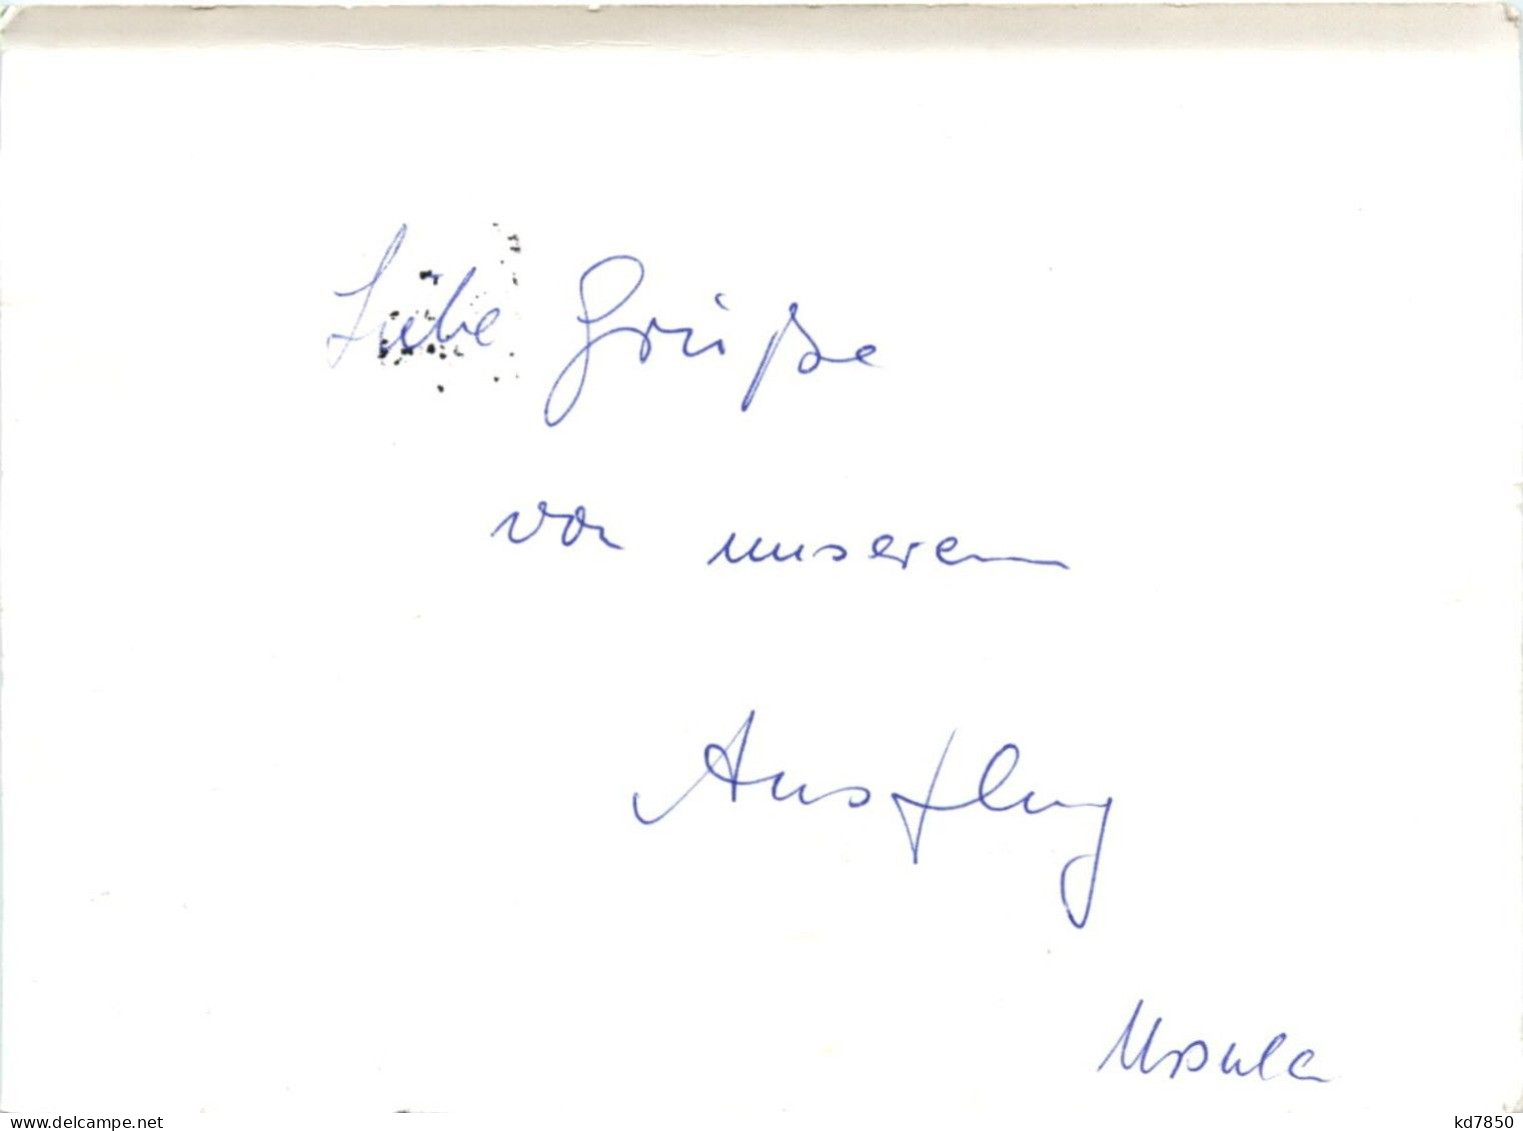 Liebe Grüße
von unserem
Ausflug
Ursula
www.delcampe.net
kd7850